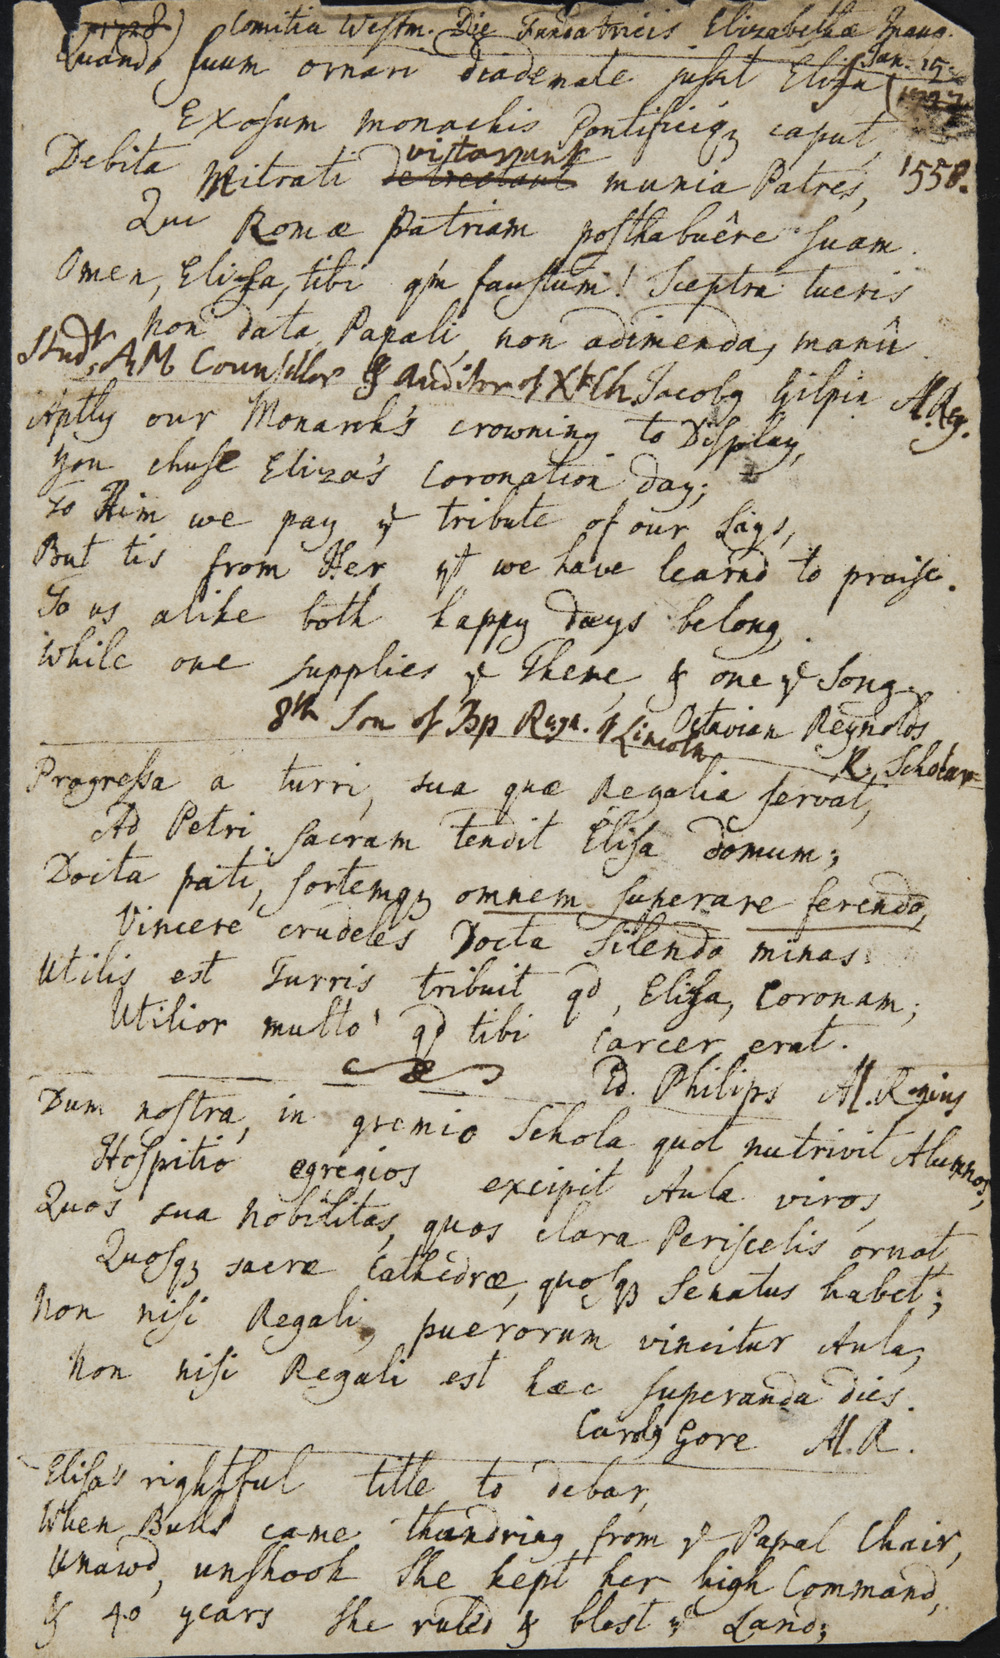 (1728) Comitia Westm. Die Fundatricis Elizabethæ Inaug.
Jan. 15.
Quando suum ornari diademate jussit Elisa
Exosum monachis Pontificiq; caput,
vitarunt
Debita Mitrati detrectant munia Patres, 1558.
Qui Romæ Patriam posthabuêre suam.
Omen, Elisa, tibi qm faustum! Sceptra tueris
Non data Papali, non adimenda, manû.
Studt, AM Counsellor & Auditor of Xt Ch. Jacobg Gilpin Al. Reg.
Aptly our Monarch's crowning to Display,
You chuse Eliza's Coronation day;
To Him we pay ye tribute of our Lays,
But tis from Her yt we have learnd to praise.
To us alike both happy days belong,
While one supplies ye Theme, & one ye Song.
8th Son of Bp Reyn. of Lincoln Octavian Reynolds
K. Scholar
Progressa a turri, sua quæ Regalia servat,
Ad Petri sacram tendit Elisa domum;
Docta pati, sortemq; omnem superare ferendo,
Vincere crudeles Docta silendo minas
Utilis est Turris tribuit qd, Elisa, Coronam;
Utilior multo' qd tibi Carcer erat.
Ed. Philips Al. Regius
Dum nostra, in gremio Schola quot nutrivit Alumnos,
Hospitio egregios excipit Aula viros,
Quos sua Nobilitas, quos clara Periscelis ornat,
Quosq; sacræ Cathedræ, quosq; Senatus habet;
Non nisi Regali, puerorum vincitur Aula,
Non nisi Regali est hæc superanda dies.
Carolg Gore Al. R.
Elisa's rightful title to debar,
When Bulls came thundring from ye Papal Chair,
Unawd, unshook She kept her high Command,
& 40 years She ruled & blest ye Land;